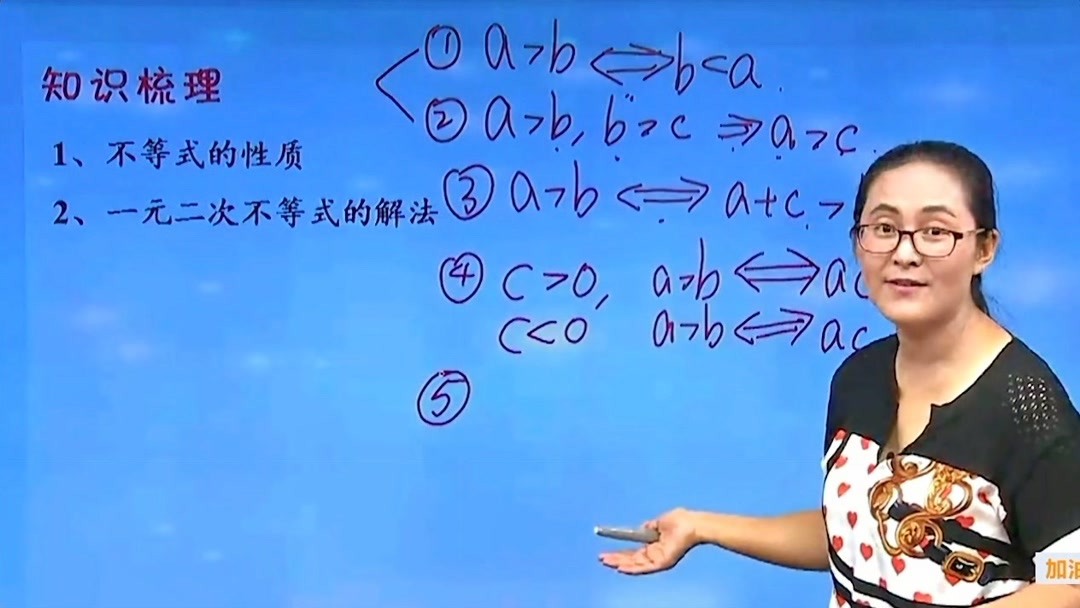 知识梳理
1、不等式的性质
2、一元二次不等式的解法
① a>b ⟺ b<a.
② a>b, b>c ⇒ a>c.
③ a>b ⟺ a+c>
④ c>0, a>b ⟺ ac
c<0 a>b ⟺ ac
⑤
加油